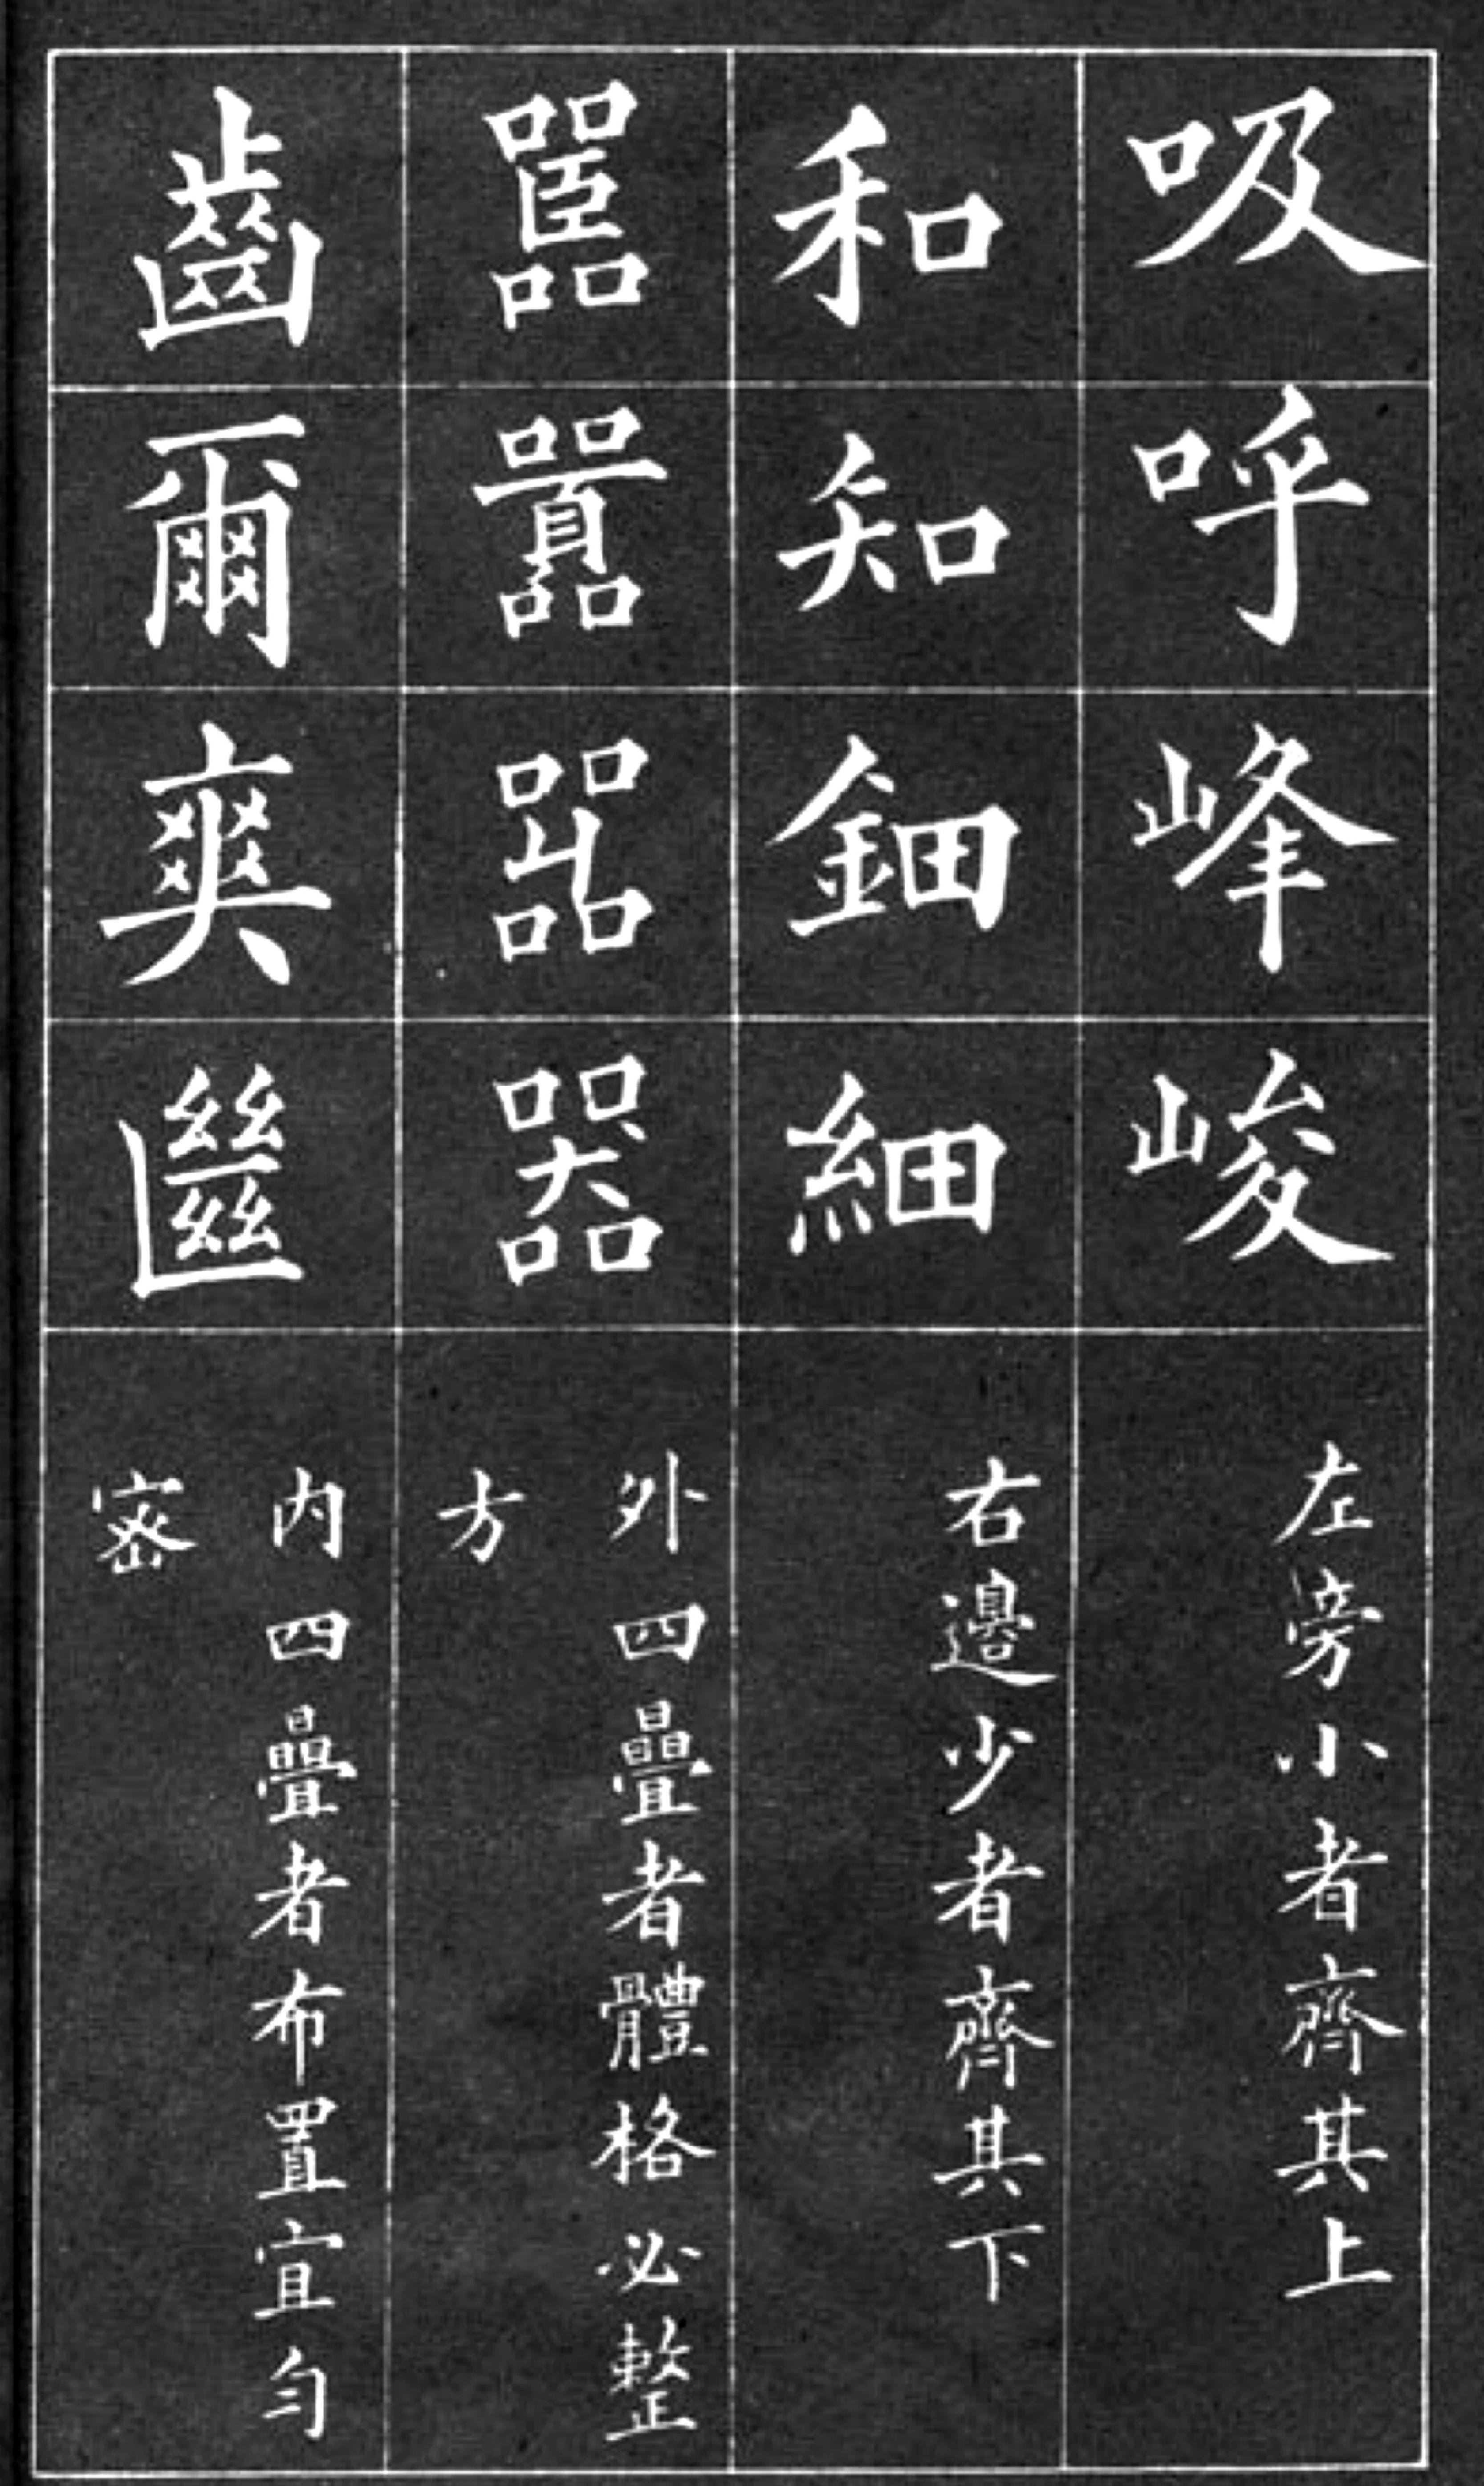 吸呼峰峻
左旁小者齊其上
和知鈿細
右邊少者齊其下
嚚囂嘂器
外四曡者體格必整
方
齒爾爽㡭
内四曡者布置宜勻
密